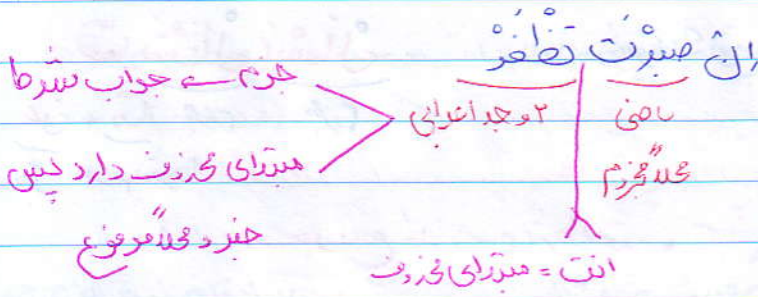 إن صبرْتَ تظْفَُرْ
ماضی
محلاً مجزوم
۲ وجه اعرابی
جزم ← جواب شرط
مبتدای محذوف دارد پس
خبر و محلاً مرفوع
انت = مبتدای محذوف